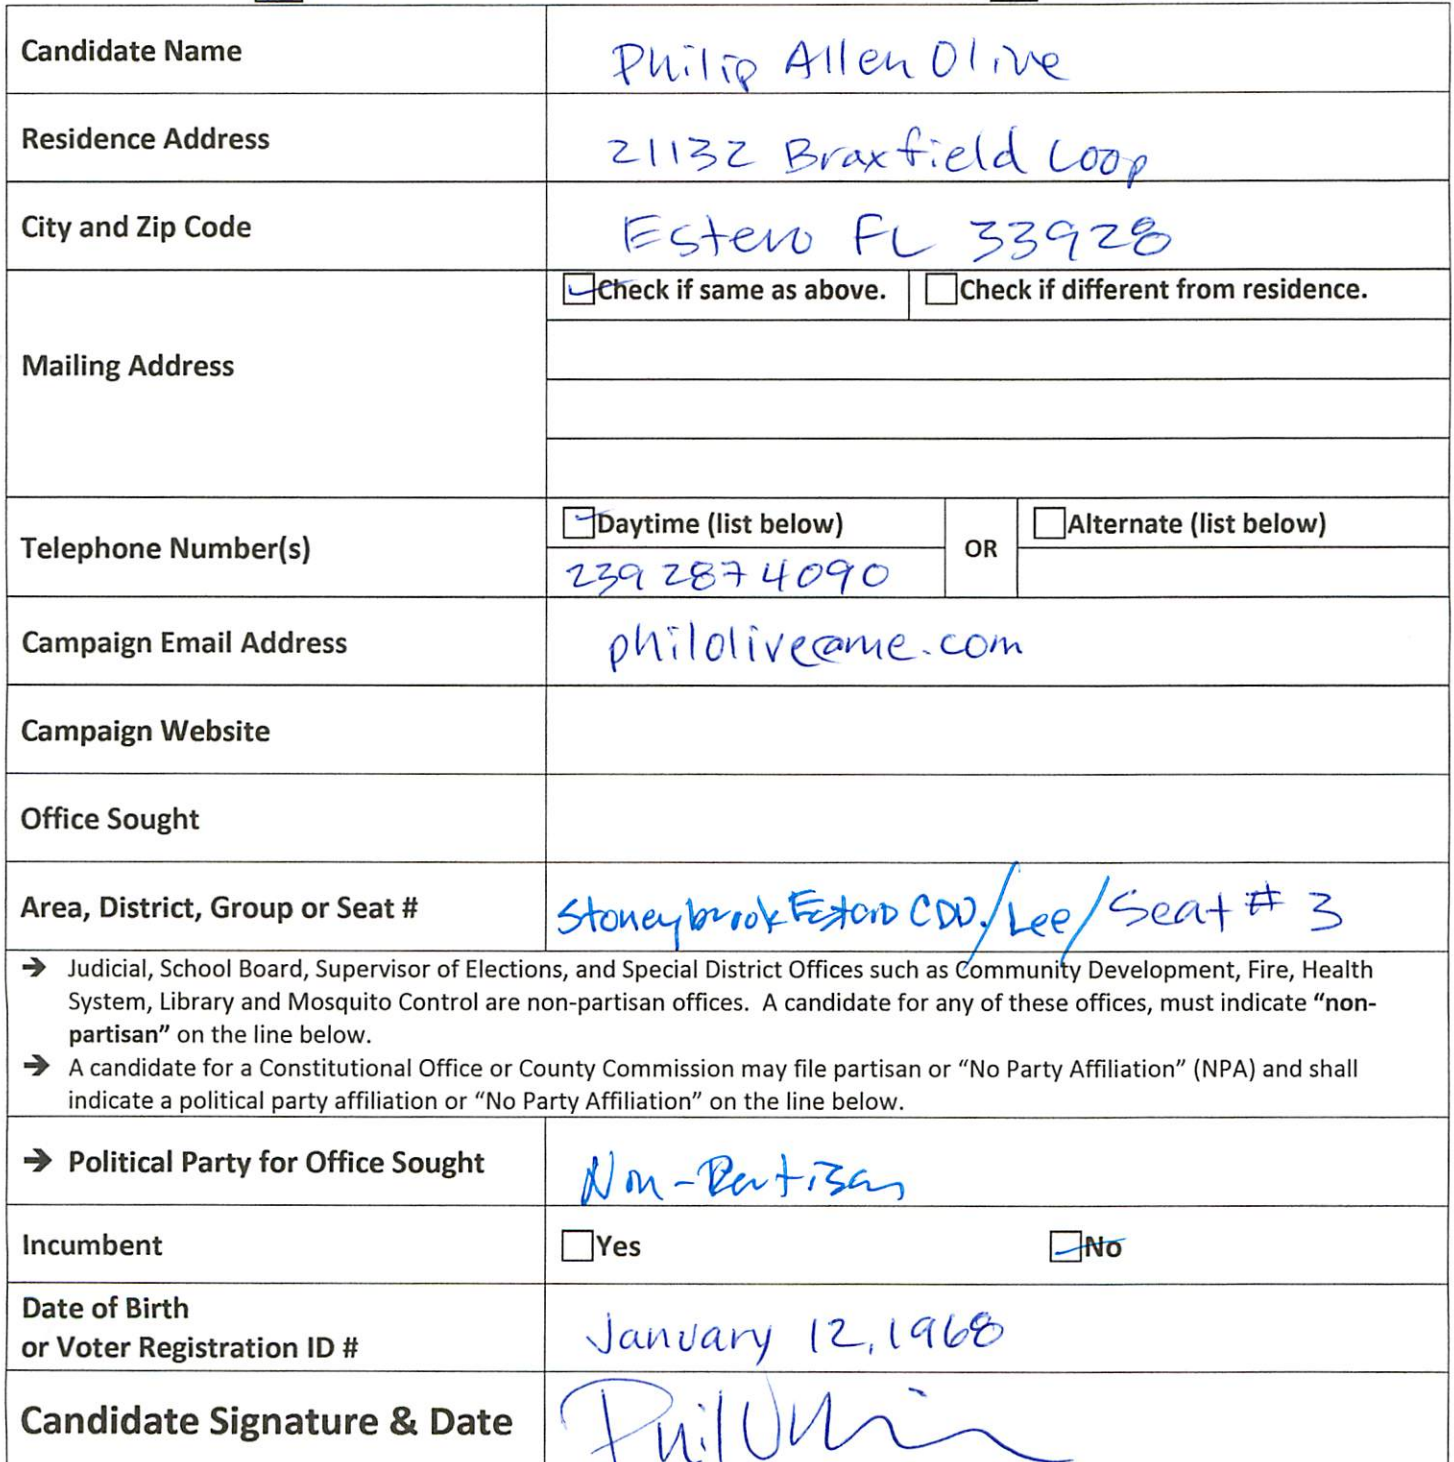 Candidate Name Philip Allen Olive
Residence Address 21132 Braxfield Loop
City and Zip Code Estero FL 33928
Check if same as above. Check if different from residence.
Mailing Address
Daytime (list below) OR Alternate (list below)
Telephone Number(s)
239 287 4090
Campaign Email Address philolive@me.com
Campaign Website
Office Sought
Area, District, Group or Seat # Stoneybrook Estero CDD/Lee/Seat # 3
→ Judicial, School Board, Supervisor of Elections, and Special District Offices such as Community Development, Fire, Health
System, Library and Mosquito Control are non-partisan offices. A candidate for any of these offices, must indicate "non-
partisan" on the line below.
→ A candidate for a Constitutional Office or County Commission may file partisan or "No Party Affiliation" (NPA) and shall
indicate a political party affiliation or "No Party Affiliation" on the line below.
→ Political Party for Office Sought Non-Partisan
Incumbent Yes No
Date of Birth
or Voter Registration ID # January 12, 1968
Candidate Signature & Date Phil